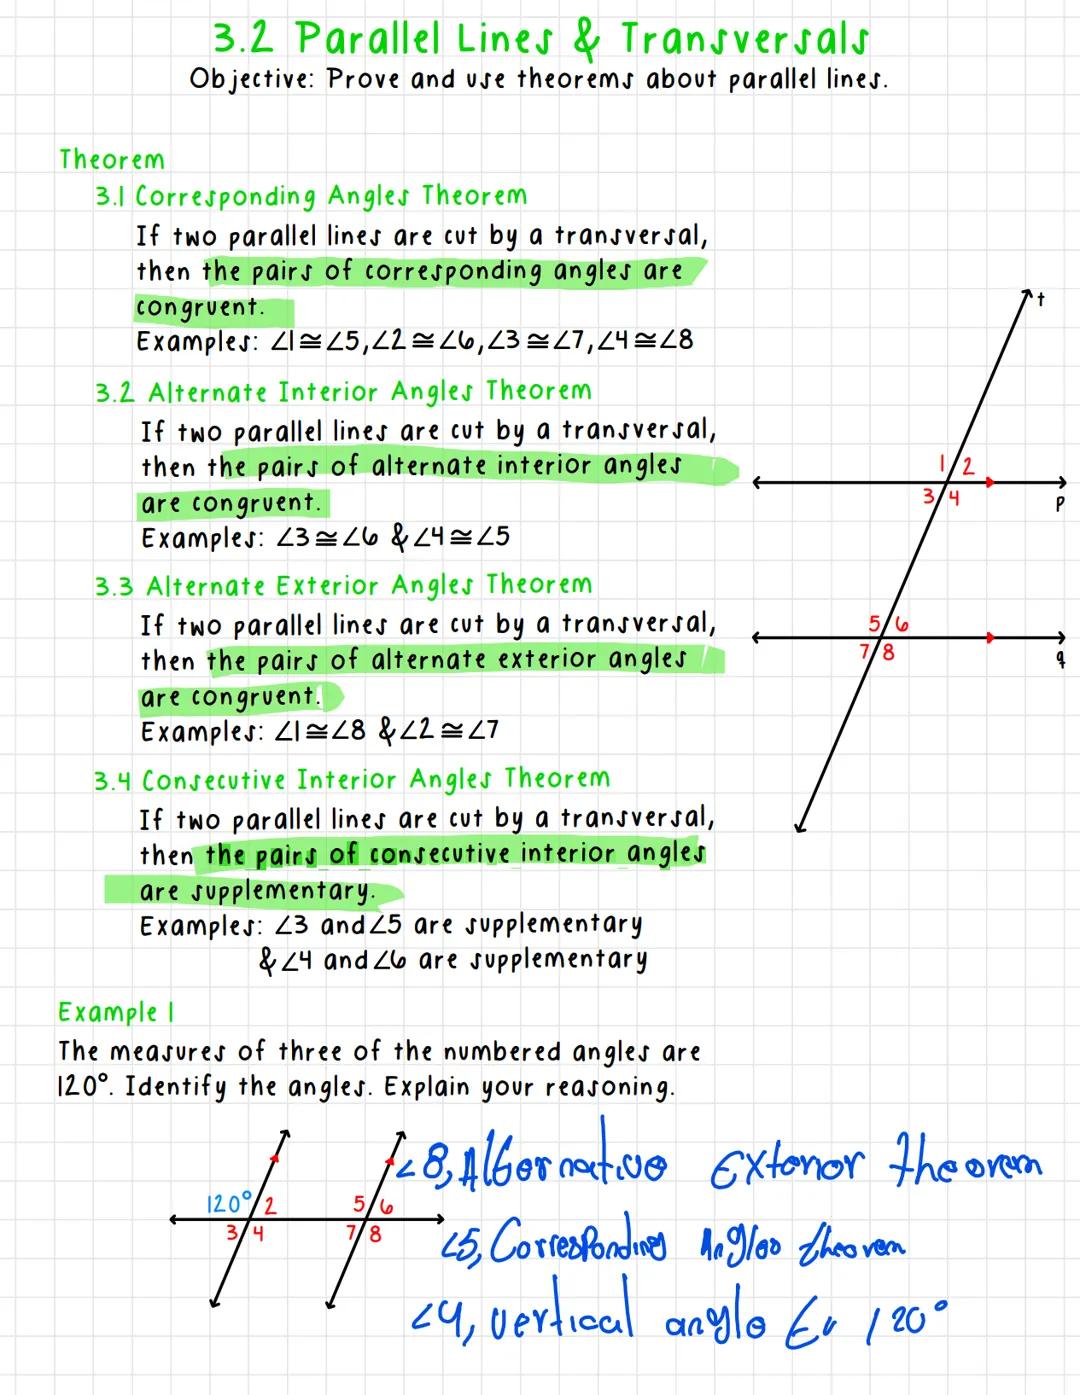 3.2 Parallel Lines & Transversals
Objective: Prove and use theorems about parallel lines.
Theorem
3.1 Corresponding Angles Theorem
If two parallel lines are cut by a transversal,
then the pairs of corresponding angles are
congruent.
Examples: ∠1≅∠5,∠2≅∠6,∠3≅∠7,∠4≅∠8
3.2 Alternate Interior Angles Theorem
If two parallel lines are cut by a transversal,
then the pairs of alternate interior angles
are congruent.
Examples: ∠3≅∠6 & ∠4≅∠5
3.3 Alternate Exterior Angles Theorem
If two parallel lines are cut by a transversal,
then the pairs of alternate exterior angles
are congruent.
Examples: ∠1≅∠8 & ∠2≅∠7
3.4 Consecutive Interior Angles Theorem
If two parallel lines are cut by a transversal,
then the pairs of consecutive interior angles
are supplementary.
Examples: ∠3 and ∠5 are supplementary
& ∠4 and ∠6 are supplementary
t
1 2
3 4
p
5 6
7 8
q
Example 1
The measures of three of the numbered angles are
120°. Identify the angles. Explain your reasoning.
120° 2
3 4
5 6
7 8
∠8, Alternative Exterior theorem
∠5, Corresponding Angles theorem
∠4, vertical angle 120°